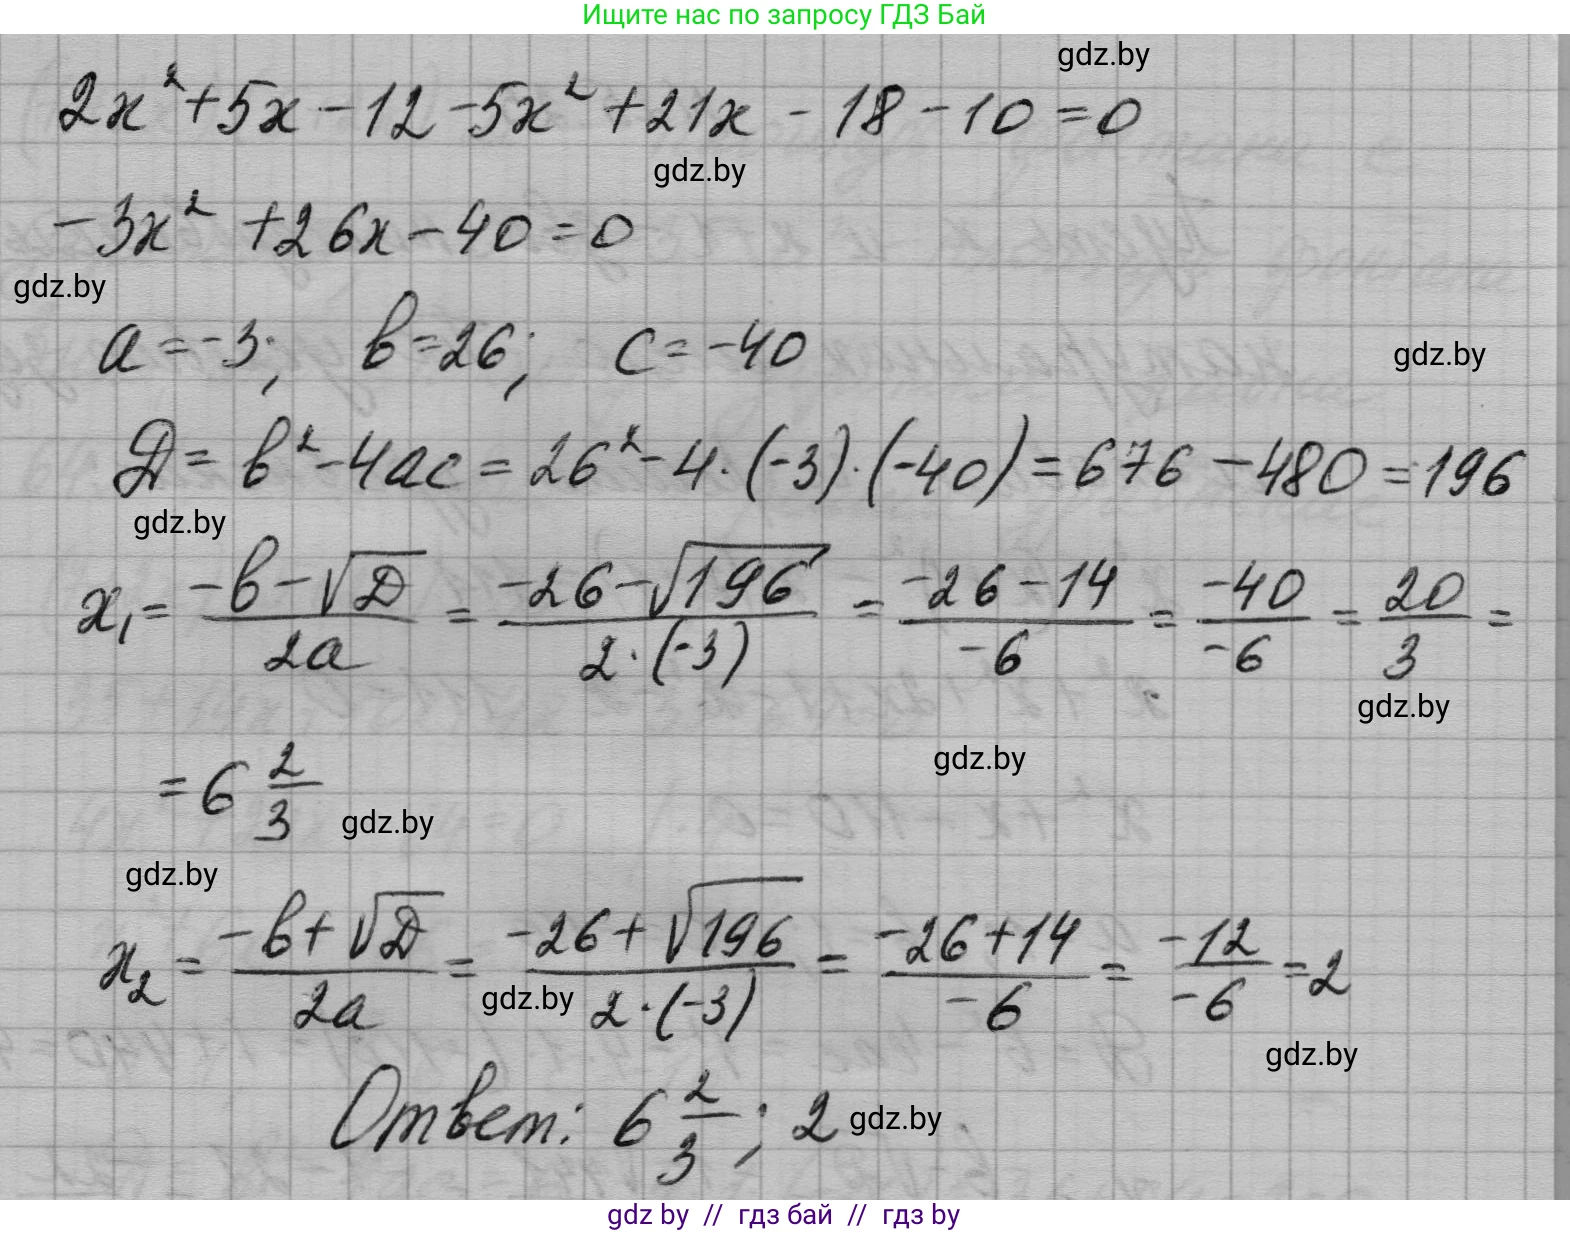 Ищите нас по запросу ГДЗ Бай
gdz.by
2x² + 5x - 12 - 5x² + 21x - 18 - 10 = 0
gdz.by
-3x² + 26x - 40 = 0
gdz.by
a = -3; b = 26; c = -40
gdz.by
D = b² - 4ac = 26² - 4 · (-3) · (-40) = 676 - 480 = 196
gdz.by
x₁ = (-b - √D)/(2a) = (-26 - √196)/(2 · (-3)) = (-26 - 14)/(-6) = (-40)/(-6) = 20/3 =
gdz.by
gdz.by
= 6 2/3
gdz.by
gdz.by
x₂ = (-b + √D)/(2a) = (-26 + √196)/(2 · (-3)) = (-26 + 14)/(-6) = (-12)/(-6) = 2
gdz.by
gdz.by
Ответ: 6 2/3; 2
gdz.by
gdz by // гдз бай // гдз by